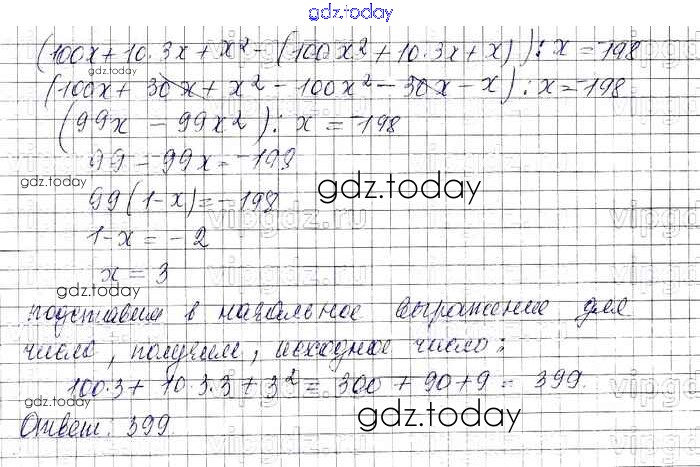 gdz.today
(100x + 10·3x + x² - (100x² + 10·3x + x)) : x = -198
gdz.today
(100x + 30x + x² - 100x² - 30x - x) : x = -198
(99x - 99x²) : x = -198
99 - 99x = -198
gdz.today
gdz.today
99(1-x) = -198
vipgdz.ru
1-x = -2
x = 3
gdz.today
подставим в начальное выражение для
числа, получим, исходное число:
100·3 + 10·3·3 + 3² = 300 + 90 + 9 = 399
gdz.today
gdz.today
Ответ: 399